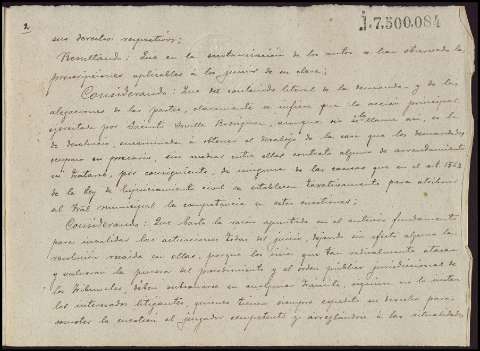 2.
J.7.500.084
sus derechos respectivos;
Resultando: Que en la sustanciación de los autos se han observado las
prescripciones aplicables á los juicios de su clase;
Considerando: Que del contenido literal de la demanda y de las
alegaciones de las partes, claramente se infiere que la acción principal
ejercitada por Jacinto Rodriguez, aunque sin llamarse así, es la
de desahucio, encaminada á obtener el desalojo de la casa que los demandados
ocupan en precario, sin mediar entre ellos contrato alguno de arrendamiento
no tratarse, por consiguiente, de ninguna de las causas que en el art. 1562
de la Ley de Enjuiciamiento civil se establecen taxativamente para atribuir
al Tral municipal la competencia en estas cuestiones;
Considerando: Que basta la razón apuntada en el anterior fundamento
para invalidar las actuaciones todas del juicio, dejando sin efecto alguno la
resolución recaída en ellas, porque los vicios que tan radicalmente atacan
y vulneran la pureza del procedimiento y el orden público jurisdiccional de
los Tribunales, deben subsanarse en cualquier trámite, siquiera no lo insten
los interesados litigantes, quienes tienen siempre expedito su derecho para
someter la cuestión al juzgador competente y arreglándose á las solemnidades